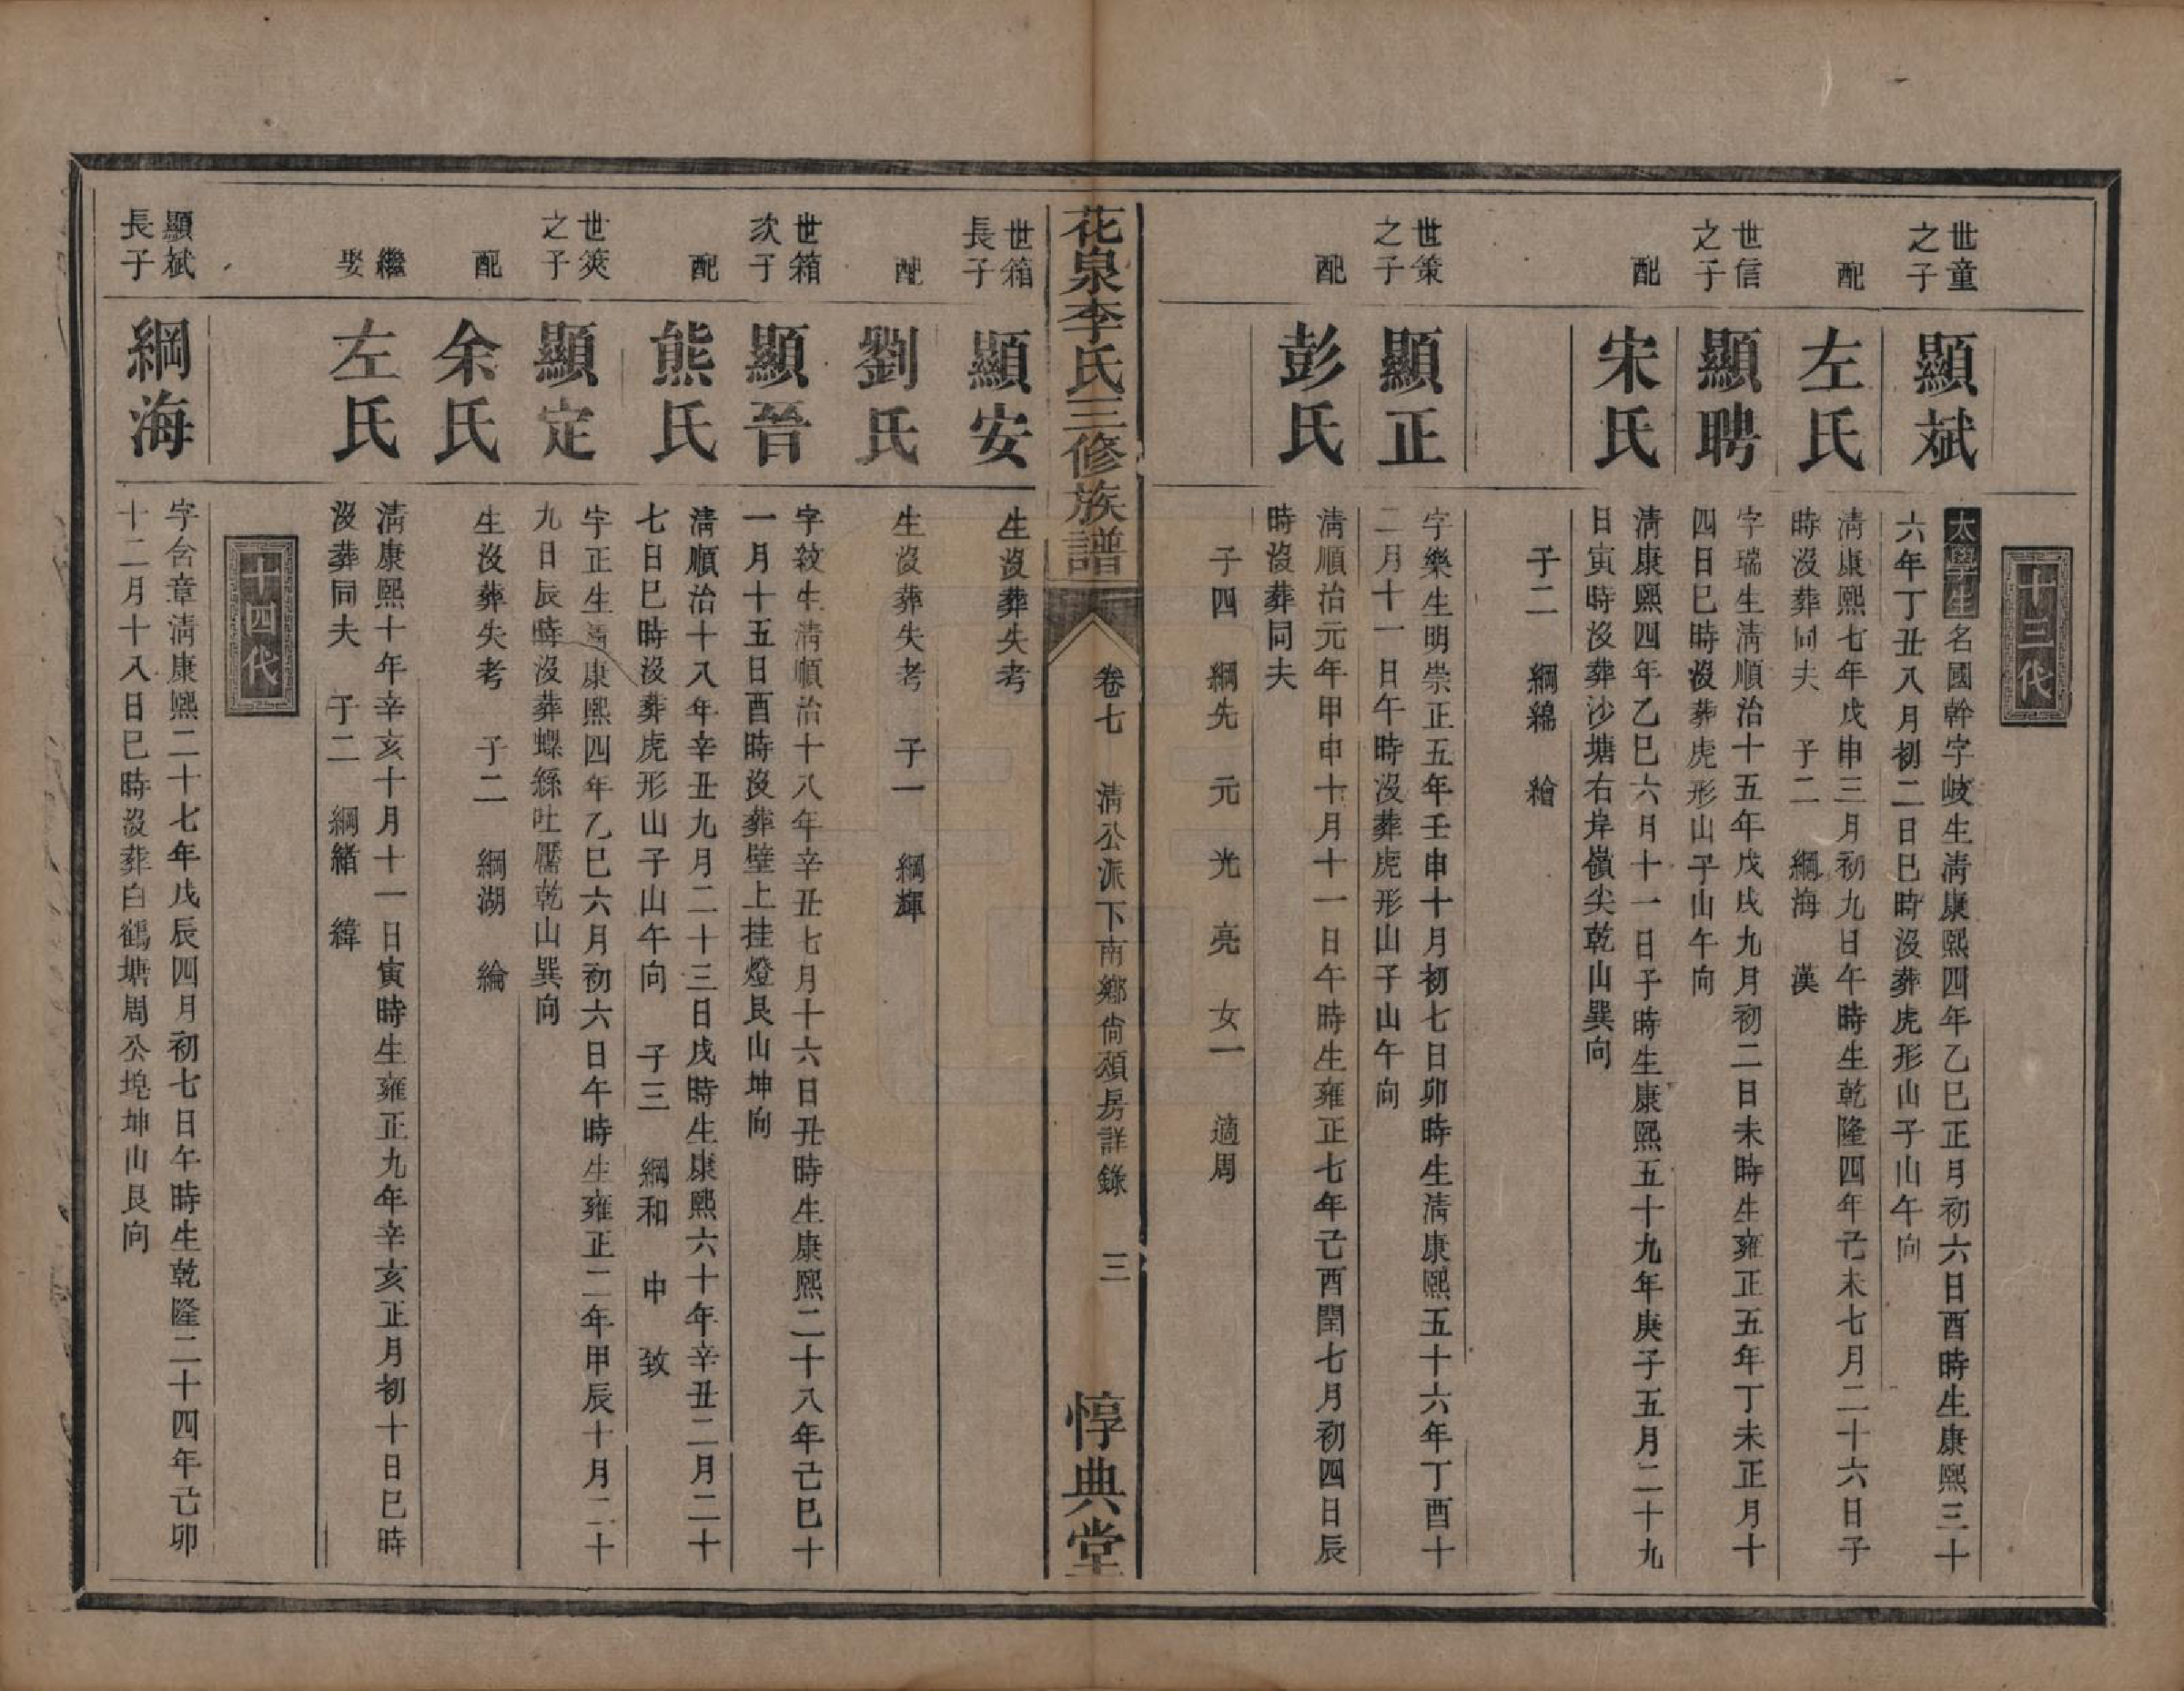 十三代
世童
之子
顯斌
太學生名國幹字岐生淸康熙四年乙巳正月初六日酉時生康熙三十
六年丁丑八月初二日巳時沒葬虎形山子山午向
配
左氏
淸康熙七年戊申三月初九日午時生乾隆四年己未七月二十六日子
時沒葬同夫　子二　綱海　漢
世信
之子
顯聘
字瑞生淸順治十五年戊戌九月初二日未時生雍正五年丁未正月十
四日巳時沒葬虎形山子山午向
配
宋氏
淸康熙四年乙巳六月十一日子時生康熙五十九年庚子五月二十九
日寅時沒葬沙塘右岸嶺尖乾山巽向
子二　綱綿　繪
世策
之子
顯正
字樂生明崇正五年壬申十月初七日卯時生淸康熙五十六年丁酉十
二月十一日午時沒葬虎形山子山午向
配
彭氏
淸順治元年甲申十月十一日午時生雍正七年己酉閏七月初四日辰
時沒葬同夫
子四　綱先　元　光　亮　女一　適周
花泉李氏三修族譜
卷七　淸公派下南鄉尙頌房詳錄　三
惇典堂
世箱
長子
顯安
生沒葬失考
配
劉氏
生沒葬失考　子一　綱輝
世箱
次子
顯晉
字敘生淸順治十八年辛丑七月十六日丑時生康熙二十八年己巳十
一月十五日酉時沒葬壁上挂燈艮山坤向
配
熊氏
淸順治十八年辛丑九月二十三日戌時生康熙六十年辛丑二月二十
七日巳時沒葬虎形山子山午向　子三　綱和　中　致
世筴
之子
顯定
字正生淸康熙四年乙巳六月初六日午時生雍正二年甲辰十月二十
九日辰時沒葬螺絲吐靨乾山巽向
配
余氏
生沒葬失考　子二　綱湖　綸
繼
娶
左氏
淸康熙十年辛亥十月十一日寅時生雍正九年辛亥正月初十日巳時
沒葬同夫　子二　綱緒　緯
十四代
顯斌
長子
綱海
字含章淸康熙二十七年戊辰四月初七日午時生乾隆二十四年己卯
十二月十八日巳時沒葬白鶴塘周公垸坤山艮向